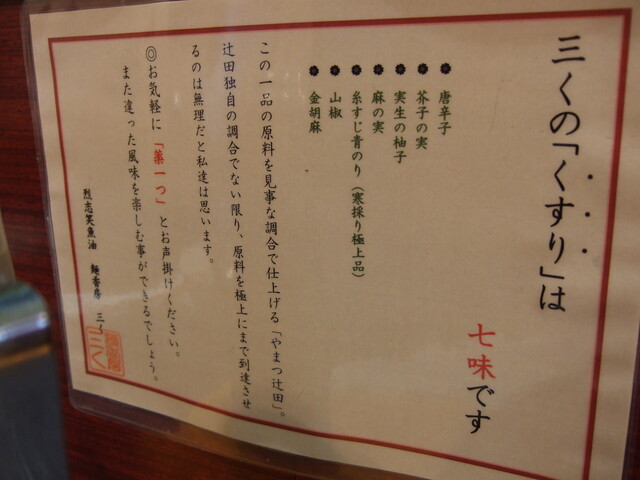 三くの「くすり」は
七味です
唐辛子
芥子の実
実生の柚子
麻の実
糸すじ青のり（寒採り極上品）
山椒
金胡麻
この一品の原料を見事な調合で仕上げる「やまつ辻田」。
辻田独自の調合でない限り、原料を極上にまで到達させ
るのは無理だと私達は思います。
◎お気軽に「薬一つ」とお声掛けください。
また違った風味を楽しむ事ができるでしょう。
烈志笑魚油 麺香房 三く
三く